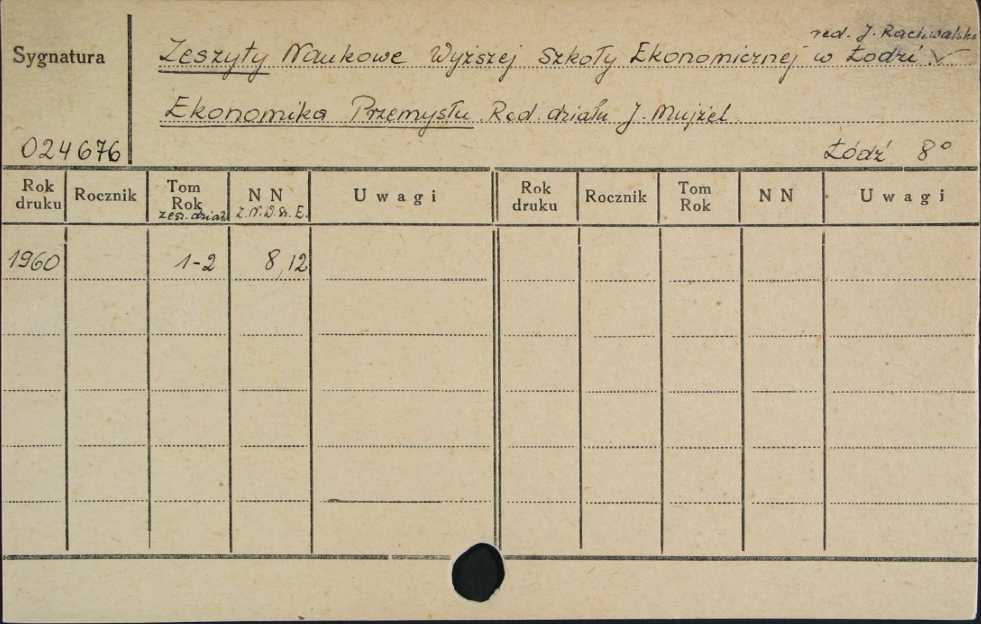 red. J. Rachwalski
Sygnatura Zeszyty Naukowe Wyższej Szkoły Ekonomicznej w Łodzi.
Ekonomika Przemysłu Red. działu J. Mujżel
024676 Łódź 8°
Rok druku Rocznik Tom Rok zesz. dział. N N Z.N.W.Sz.E. Uwagi Rok druku Rocznik Tom Rok N N Uwagi
1960 1-2 8,12